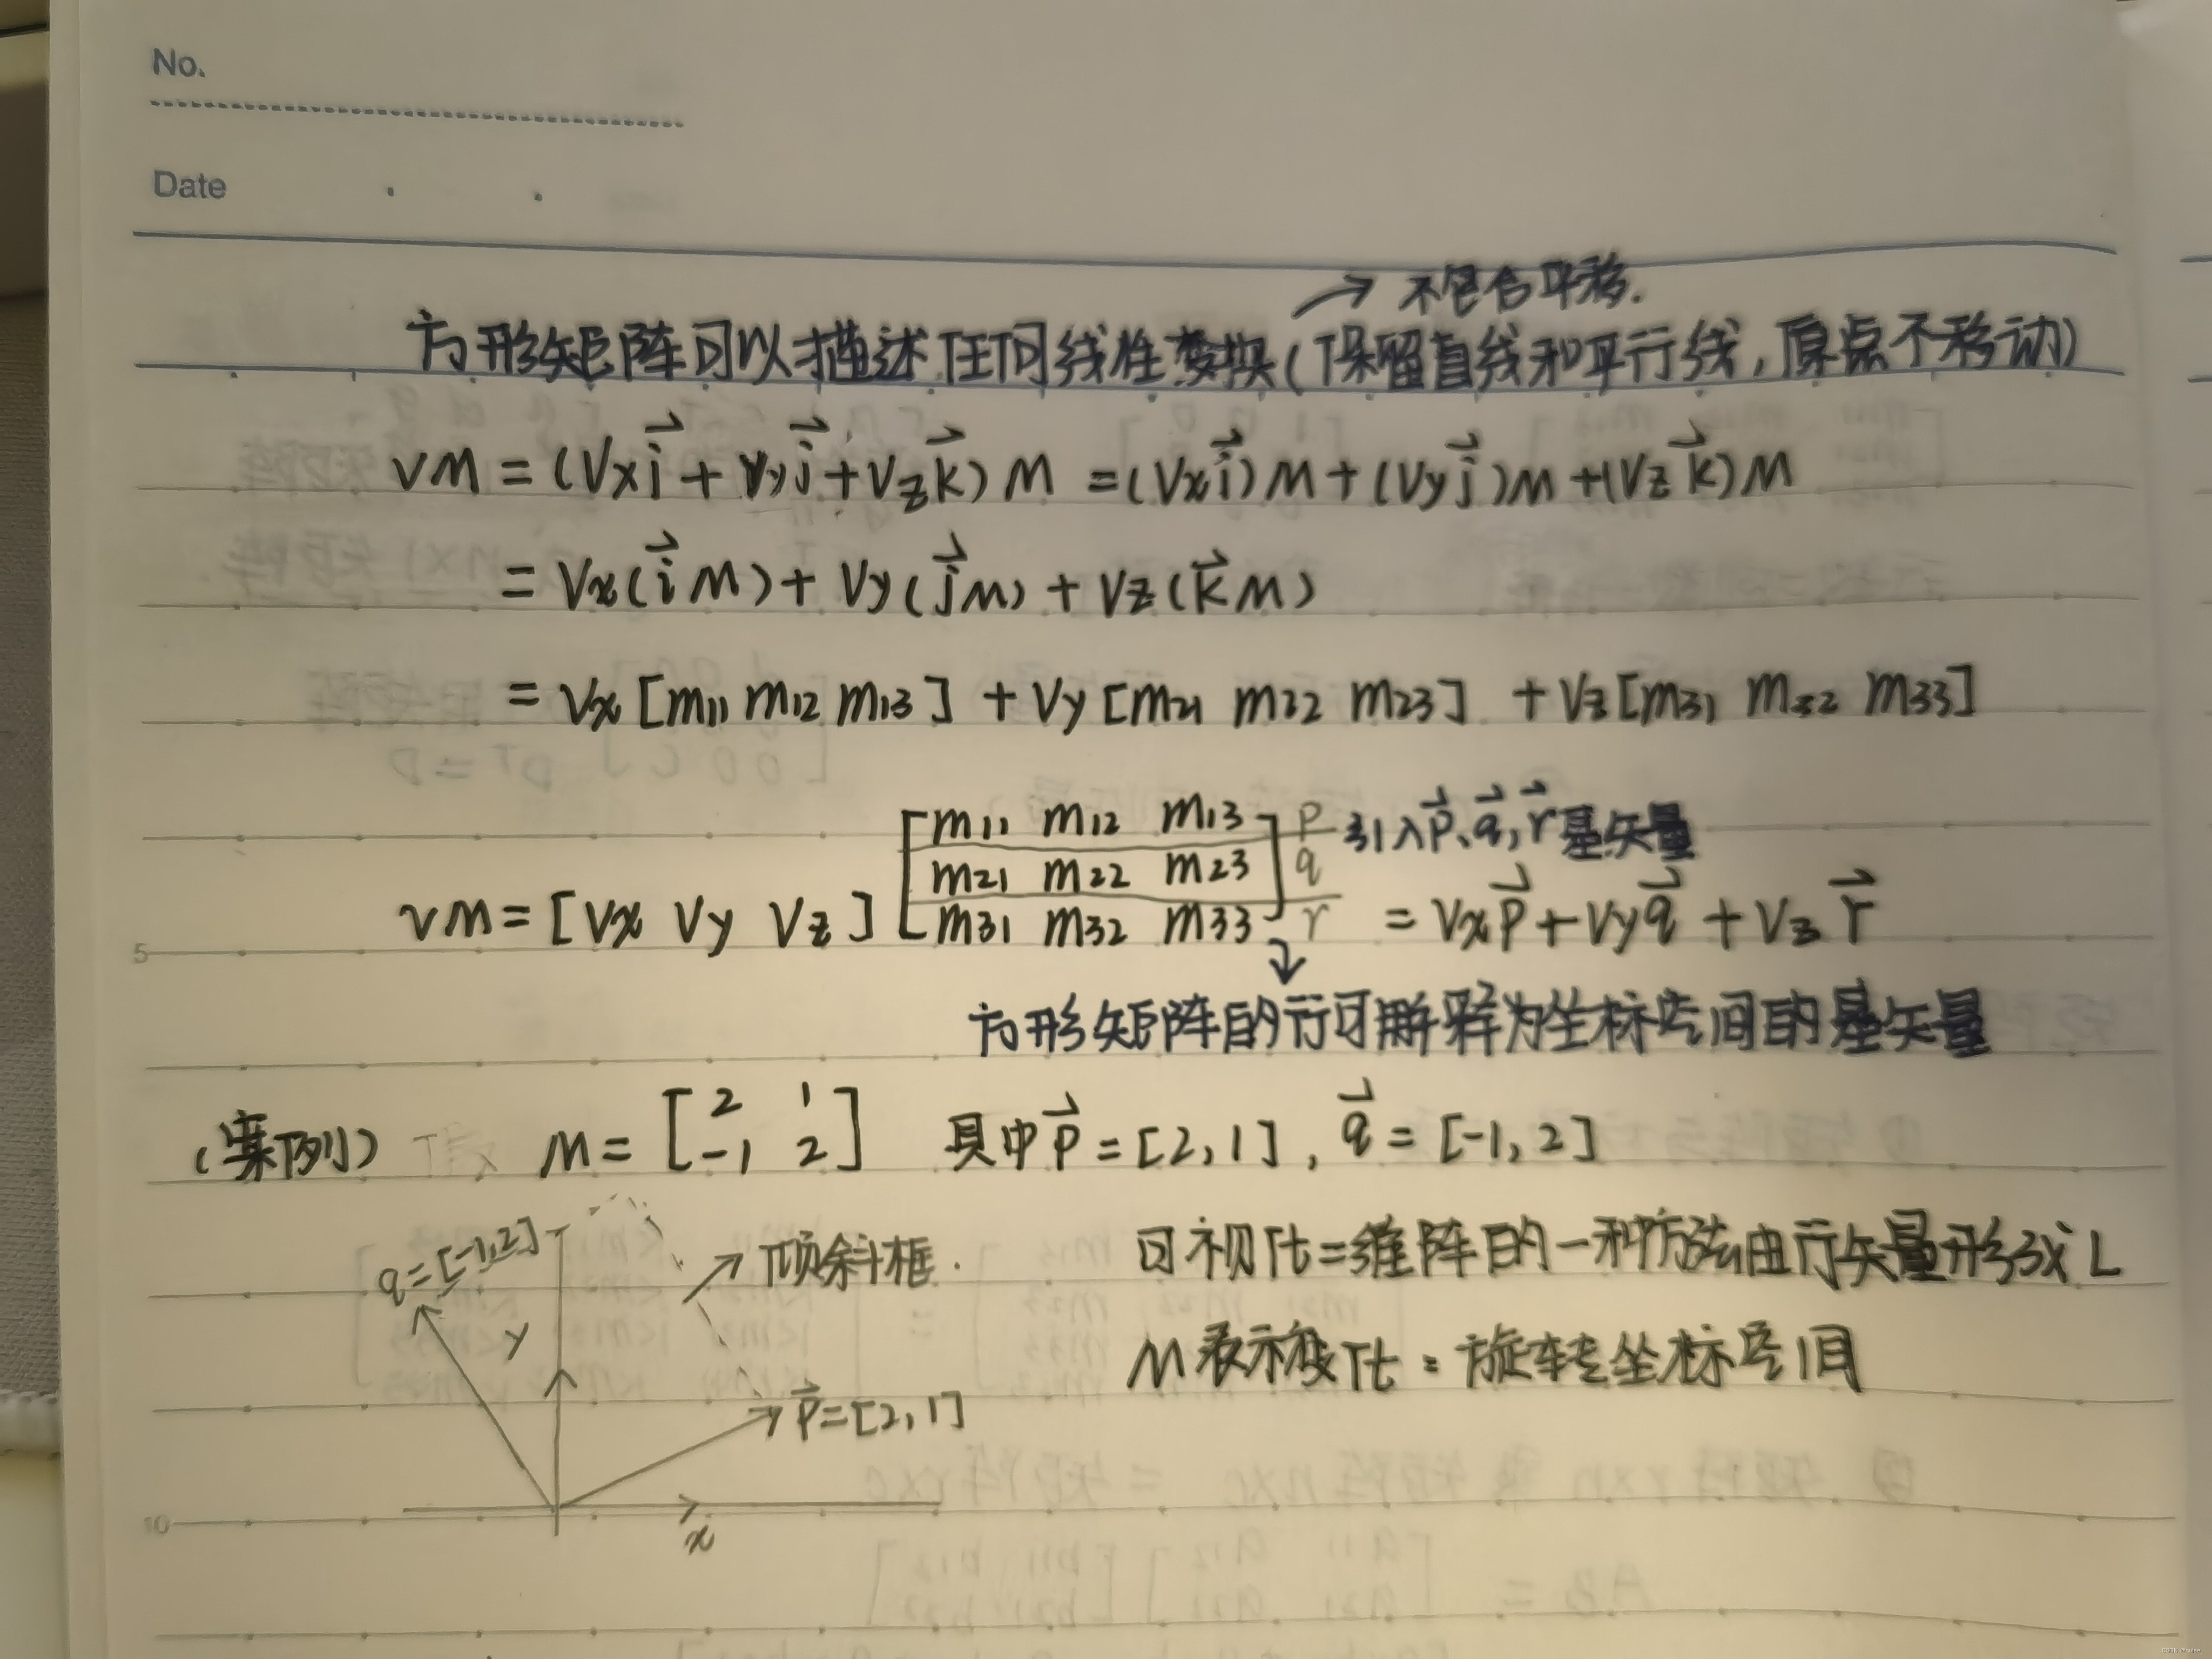 No.
Date
→ 不包含平移.
方形矩阵可以描述任何线性变换(保留直线和平行线,原点不移动)
vM = (Vx\vec{i} + Vy\vec{j} + Vz\vec{k}) M = (Vx\vec{i})M + (Vy\vec{j})M + (Vz\vec{k})M
= Vx(\vec{i}M) + Vy(\vec{j}M) + Vz(\vec{k}M)
= Vx [m11 m12 m13] + Vy [m21 m22 m23] + Vz [m31 m32 m33]
vM = [Vx Vy Vz] [m11 m12 m13
m21 m22 m23
m31 m32 m33] p q r = Vx\vec{p} + Vy\vec{q} + Vz\vec{r}
引入\vec{p}、\vec{q},\vec{r}基矢量
↓
方形矩阵的行可解释为坐标空间的基矢量
5
(案例) M = [2 1
-1 2] 其中\vec{p} = [2,1], \vec{q} = [-1,2]
q=[-1,2]
→ 倾斜框.
y
\vec{p}=[2,1]
x
可视化二维阵的一种方法由行矢量形成L
M表示被化:旋转坐标空间
10